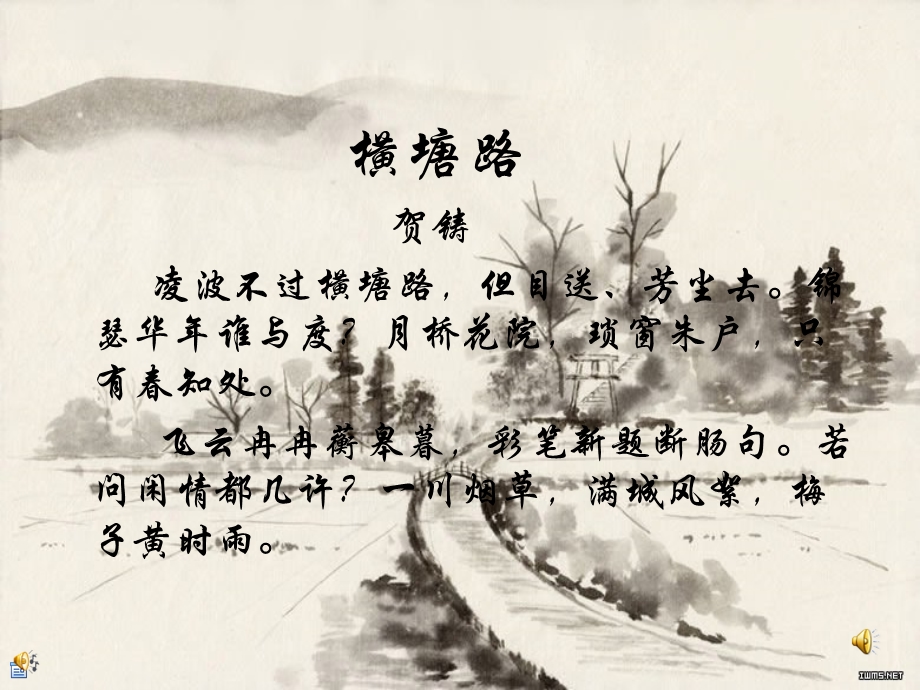 横塘路
贺铸
凌波不过横塘路，但目送、芳尘去。锦
瑟华年谁与度？月桥花院，琐窗朱户，只
有春知处。
飞云冉冉蘅皋暮，彩笔新题断肠句。若
问闲情都几许？一川烟草，满城风絮，梅
子黄时雨。
IWMS.NET